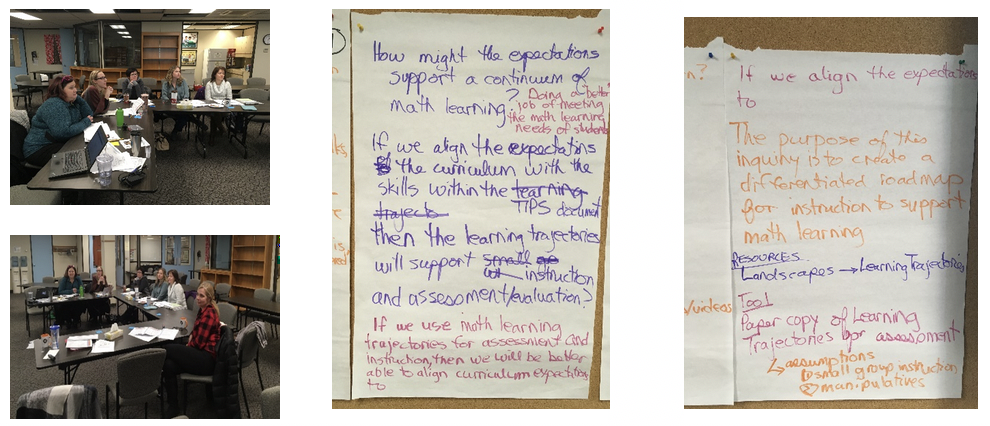 How might the expectations
support a continuum of
math learning?
Doing a better
job of meeting
the math learning
needs of students
If we align the expectations
the curriculum with the
skills within the learning
trajects TIPS document
then the learning trajectories
will support small
instruction
and assessment/evaluation?
If we use math learning
trajectories for assessment and
instruction, then we will be better
able to align curriculum expectations
to
n?
If we align the expectations
to
The purpose of this
inquiry is to create a
differentiated roadmap
for instruction to support
math learning
RESOURCES
Landscapes → Learning Trajectories
/videos
Tool
Paper copy of Learning
Trajectories for assessment
↳ assumptions
① small group instruction
② manipulatives